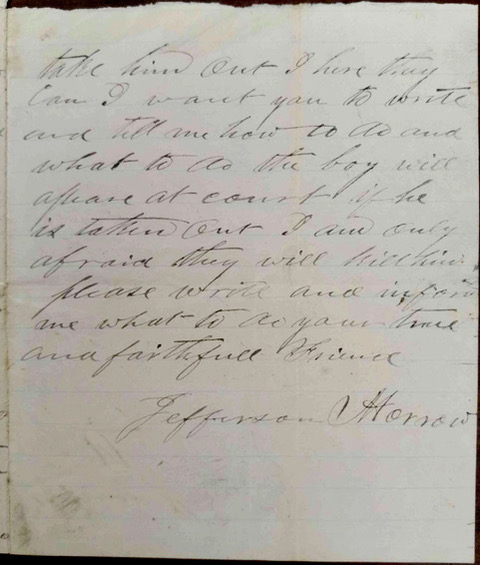 take him out I here they
Can I want you to write
and till me how to do and
what to do the boy will
apeare at court if he
is taken out I am only
afraid they will kill him
please write and inform
me what to do your true
and faithfull Friend
Jefferson Morrow